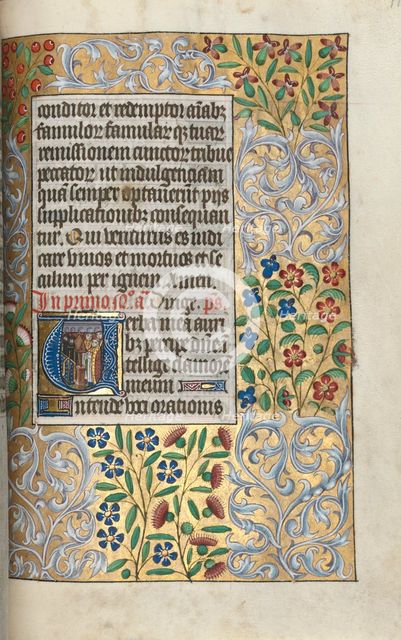 conditor et redemptor oĩm
famulor famular q̃ tuar
remissionem cunctor tribue
peccator ut indulgenciam
quã semper optauerũt pijs
supplicationibꝫ consequan
tur. Qui venturus es iudi
care viuos et mortuos et se
culum per ignem Amen
In primo No. añ. Dirige. ps
Verba mea auri
bꝫ percipe dñe ĩ
tellige clamorẽ
meum
Intende voci orationis
Heritage